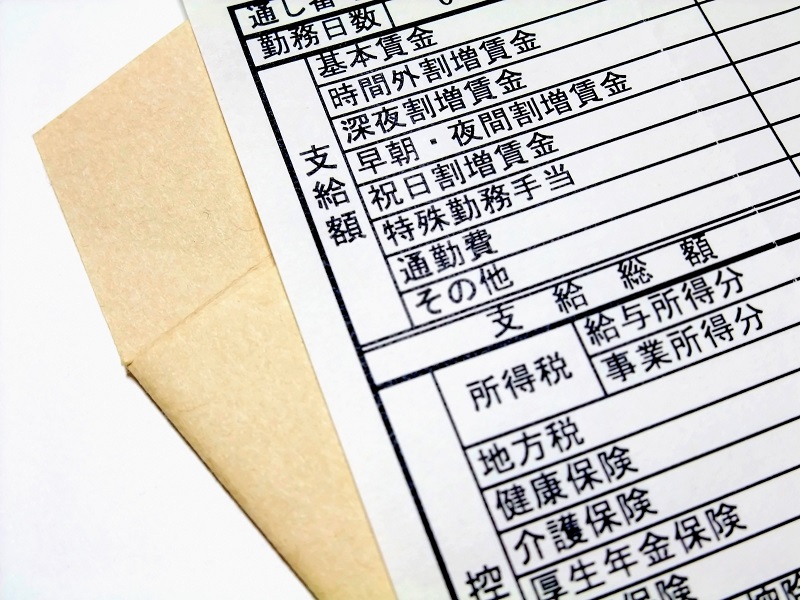 通し番
勤務日数
基本賃金
時間外割増賃金
深夜割増賃金
早朝・夜間割増賃金
祝日割増賃金
特殊勤務手当
通勤費
その他
支給額
支給総額
所得税
給与所得分
事業所得分
地方税
健康保険
介護保険
厚生年金保険
控
保険